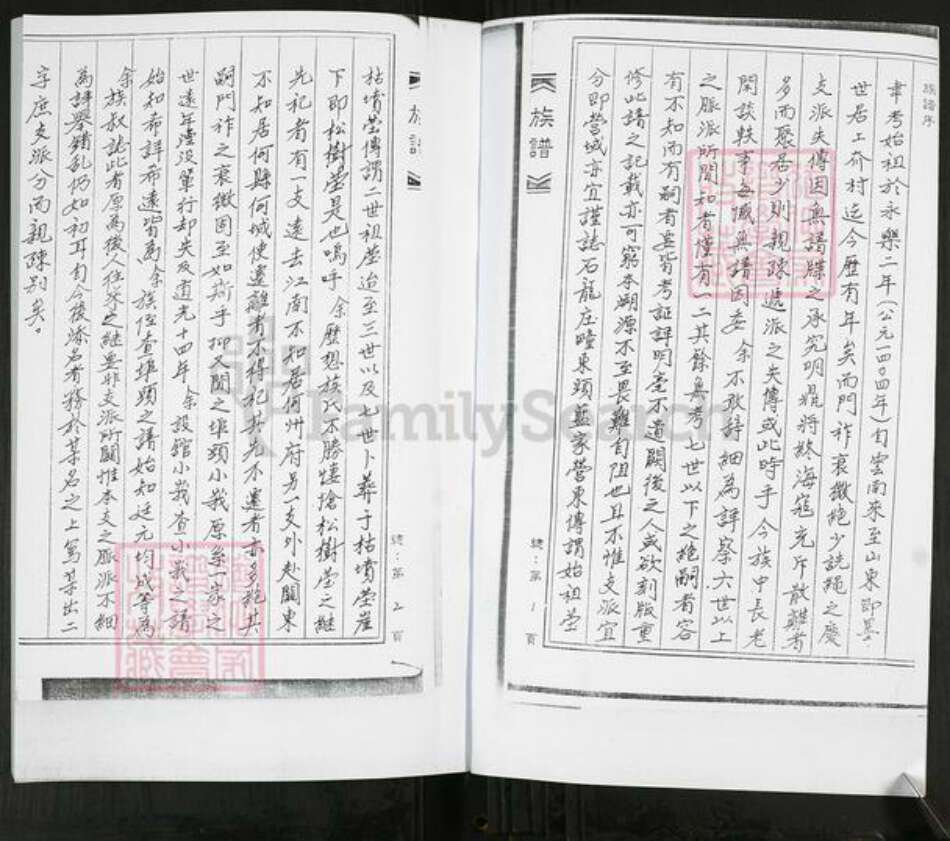 族譜序
聿考始祖於永樂二年(公元一四〇四年)自雲南來至山東即墨
世居上疃村迄今歷有年矣而門祚衰微絕少詵繩之慶
支派失傳因無譜牒之承究明鼎將終海寇充斥散離者
多而聚居少則親疎遞派之失傳或此時乎今族中長老
閑談軼事每憾無譜因委余不敢辭細為詳察六世以上
之脈派所聞知者僅有一二其餘無考七世以下之絕嗣者容
有不知而有嗣者並皆考証詳明毫不遺闕後之人或欲刻版重
修此譜之記載亦可窮本溯源不至畏難自阻也且不惟支派宜
分即塋域亦宜謹誌石龍庄疃東頭藍家營東傳謂始祖塋
族譜
總:第 1 頁
枯墳塋傳謂二世祖塋迨至三世以及七世卜葬于枯墳塋崖
下即松樹塋是也嗚呼余歷想族氏不勝悽愴松樹塋之繼
先祀者有一支遠去江南不知居何州府另一支外赴關東
不知居何縣何城使遷離者不得祀其先不遷者亦多絕其
嗣門祚之衰微固至如斯乎抑又聞之埠頭小莪原系一家之
世遠年湮沒輩行却失及道光十四年余設館小莪查小莪之譜
始知希詳希遠皆為余族侄查埠頭之譜始知廷元均成等為
余族叔誌此者原為後人往參之繼無非支派所關惟本支之脈派不細
為詳舉錯乱仍如初耳自今後添名者務於某名之上寫某出二
字庶支派分而親疎別矣。
族譜
總:第 2 頁
FamilySearch